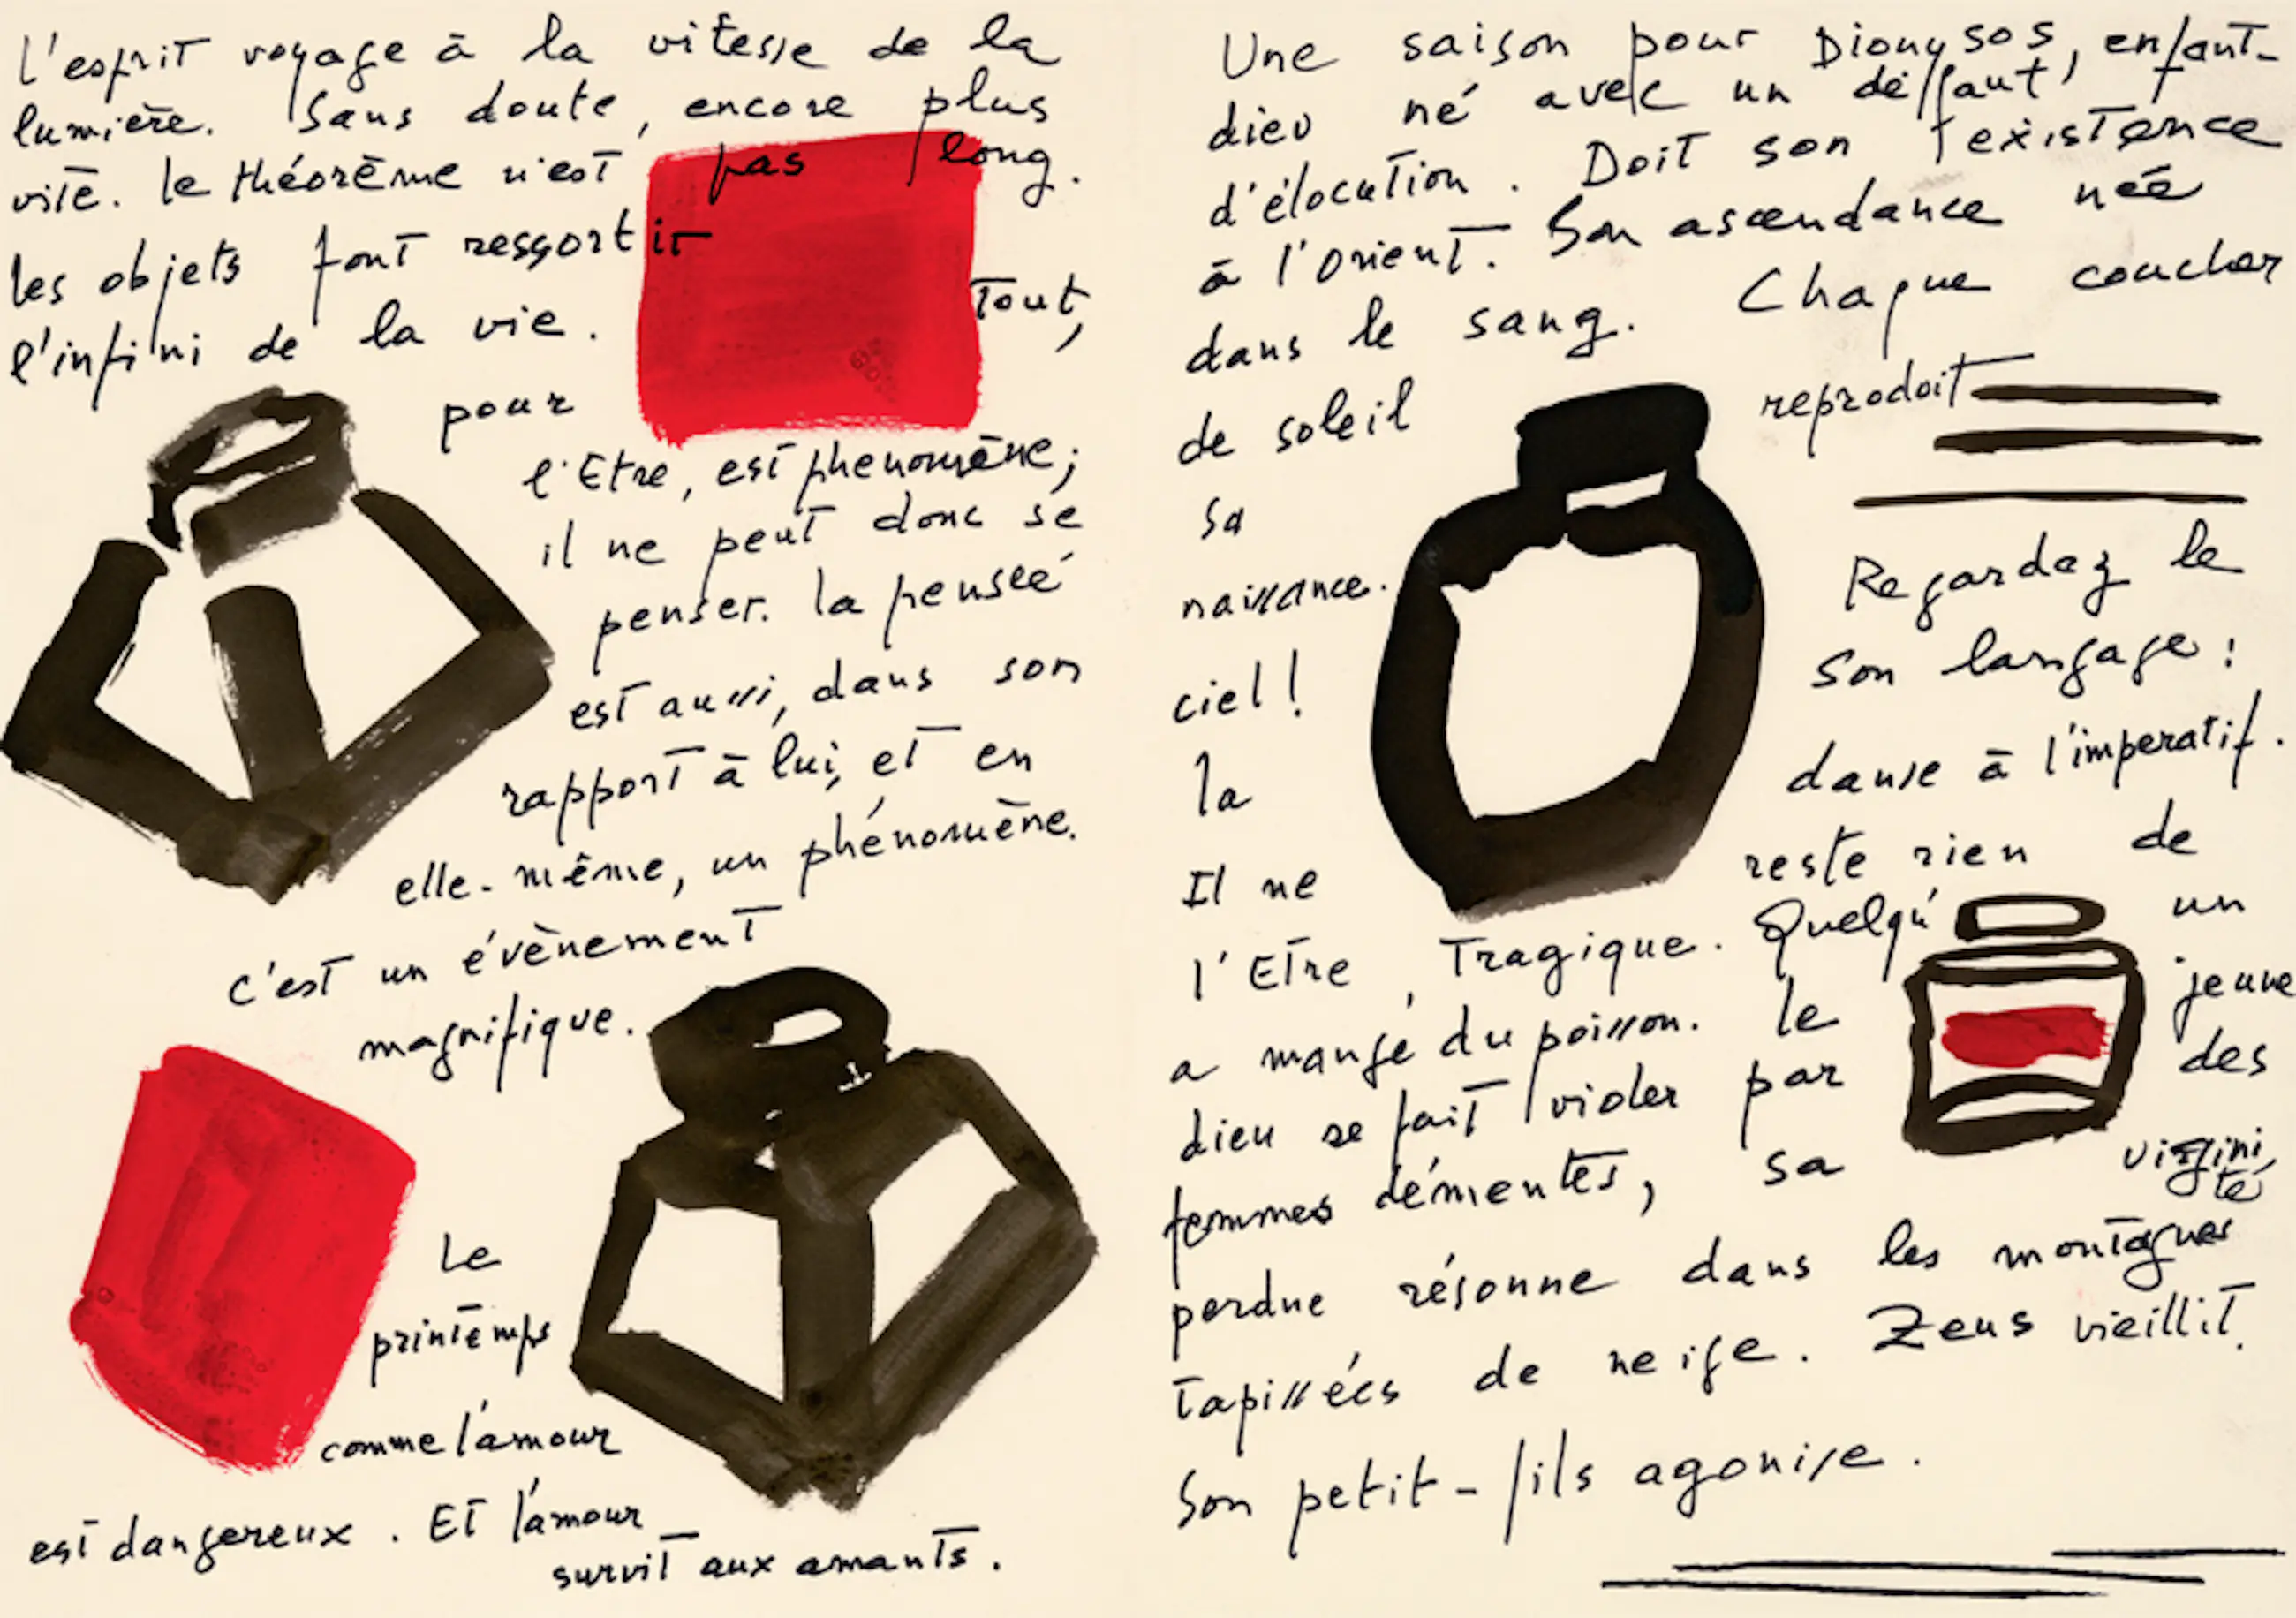 l'esprit voyage à la vitesse de la
lumière. Sans doute, encore plus
vite. le théorème n'est pas long.
les objets font ressortir
l'infini de la vie. Tout,
pour
l'Etre, est phenomène;
il ne peut donc se
penser. la pensée
est aussi, dans son
rapport à lui, et en
elle-même, un phénomène.
c'est un évènement
magnifique.
Le
printemps
comme l'amour
est dangereux. Et l'amour
survit aux amants.
Une saison pour Dionysos, enfant-
dieu né avec un défaut
d'élocution. Doit son existence
à l'Orient. Son ascendance née
dans le sang. Chaque coucher
de soleil reproduit
sa
naissance. Regardez le
ciel! Son langage:
la danse à l'imperatif.
Il ne reste rien de
l'Etre Tragique. Quelqu'un
a mangé du poisson. le jeune
dieu se fait violer par des
femmes démentes, sa virginité
perdue résonne dans les montagnes
tapissées de neige. Zeus vieillit.
Son petit-fils agonise.